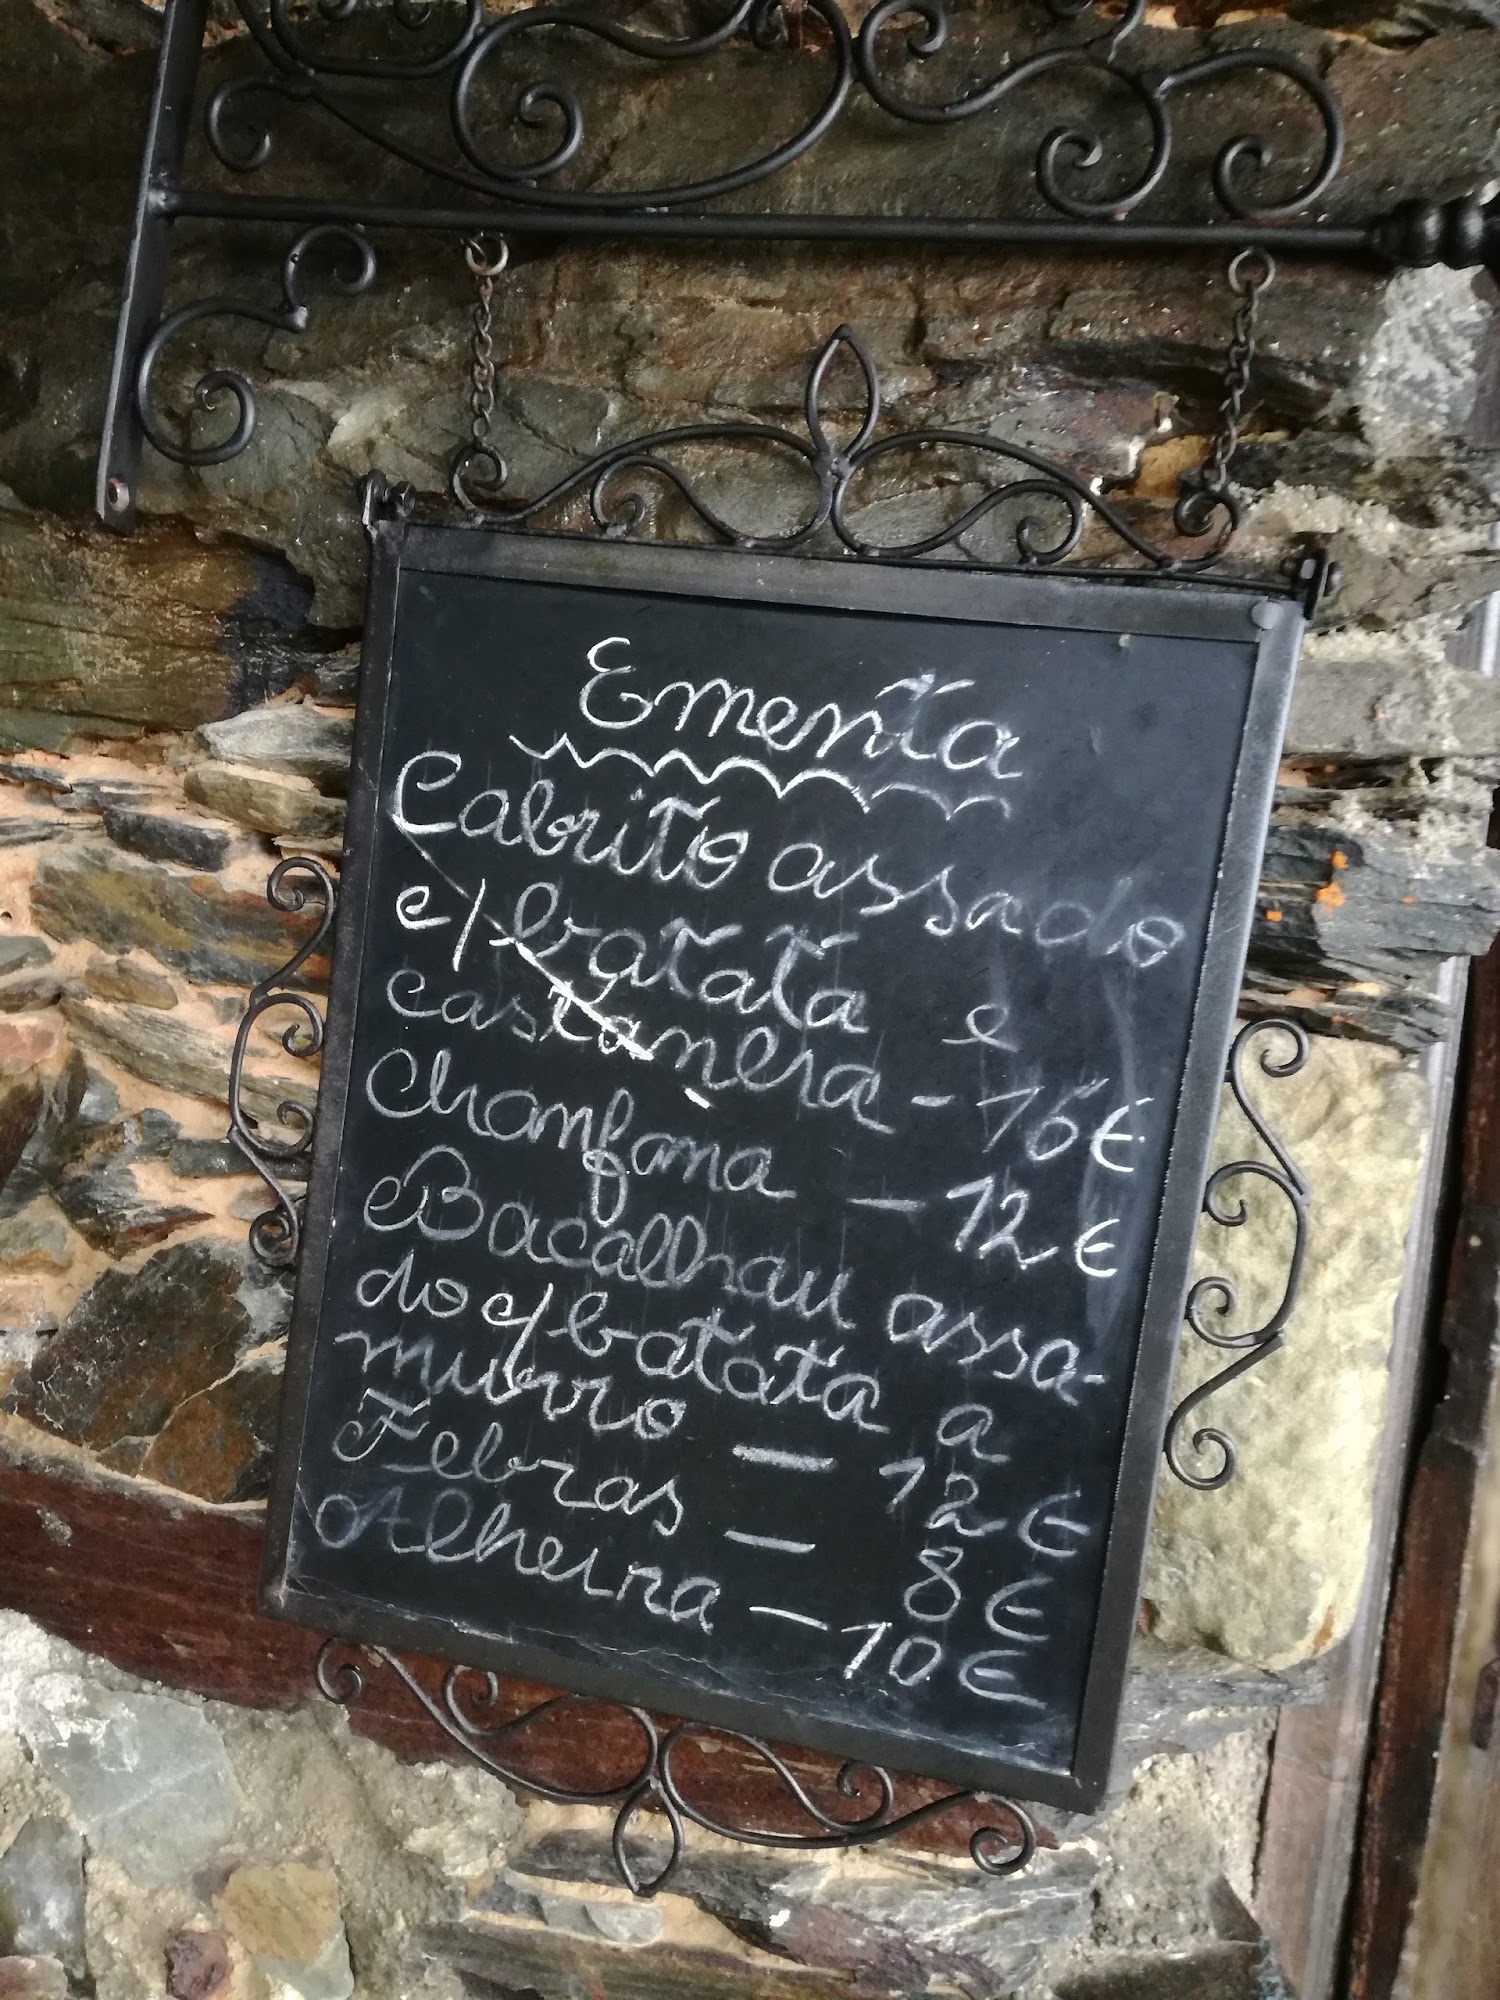 Ementa
Cabrito assado
c/ batata e
castanha - 16€
Chanfana - 12€
Bacalhau assa-
do c/ batata a
murro - 12€
Febras - 8€
Alheira - 10€